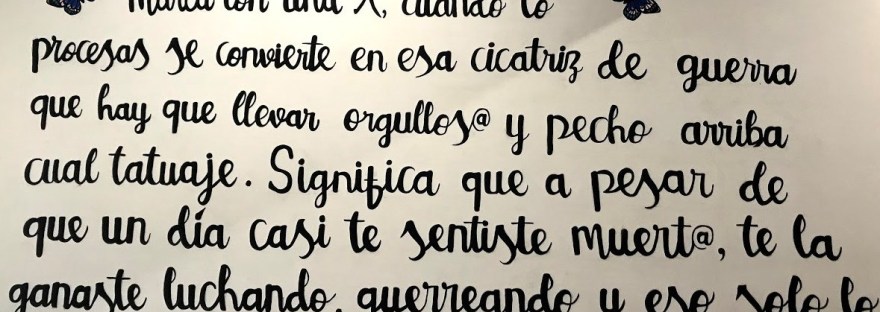 Marca con una X, cuando lo
procesas se convierte en esa cicatriz de guerra
que hay que llevar orgullos@ y pecho arriba
cual tatuaje. Significa que a pesar de
que un día casi te sentiste muert@, te la
ganaste luchando, guerreando y eso solo lo